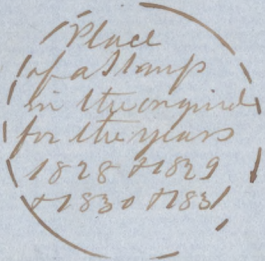 Place
of a Stamp
in the original
for the years
1828 & 1829
& 1830 & 1831